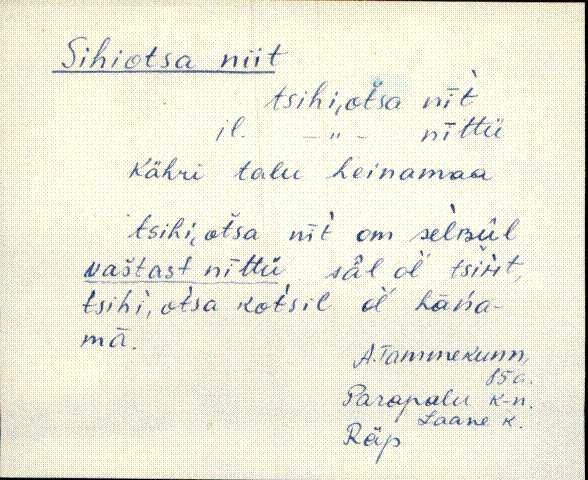 Sihiotsa niit
tsihi,ot́sa nīt̀
il. — „ — nīttü
Kähri talu heinamaa
tsihi,ot́sa nīt̀ om
vaštast nīttü sǟl öĺ
tsihi,ot́sa kot́sil öĺ
mā.
A. Tammekunn,
85a.
Parapalu k-n.
Laane k.
Räp